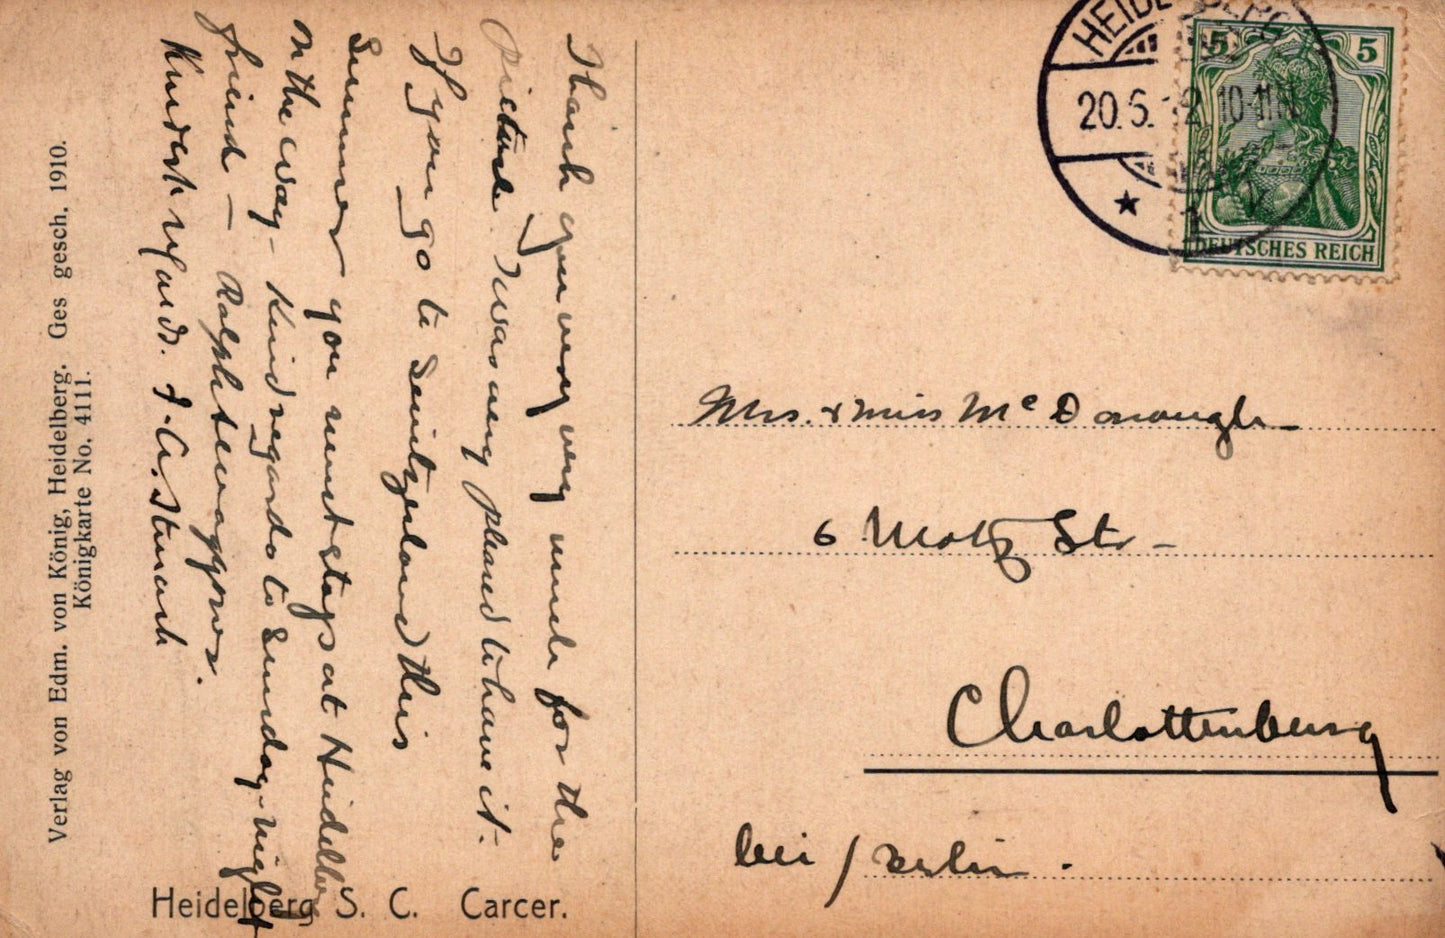 Thank you very very much for the
picture. I was very pleased to have it.
If you go to Switzerland this
Summer you must stop at Heidelberg
on the way - Kind regards to Sunday-night
friend - Ralph
Kindest regards. J. A.
Verlag von Edm. von König, Heidelberg. Ges gesch. 1910.
Königkarte No. 4111.
Heidelberg S. C. Carcer.
HEIDELBERG
20.5.12.10-11N
5 5
DEUTSCHES REICH
Mrs. & Miss McDonough
6 Motz Str-
Charlottenburg
bei Berlin.